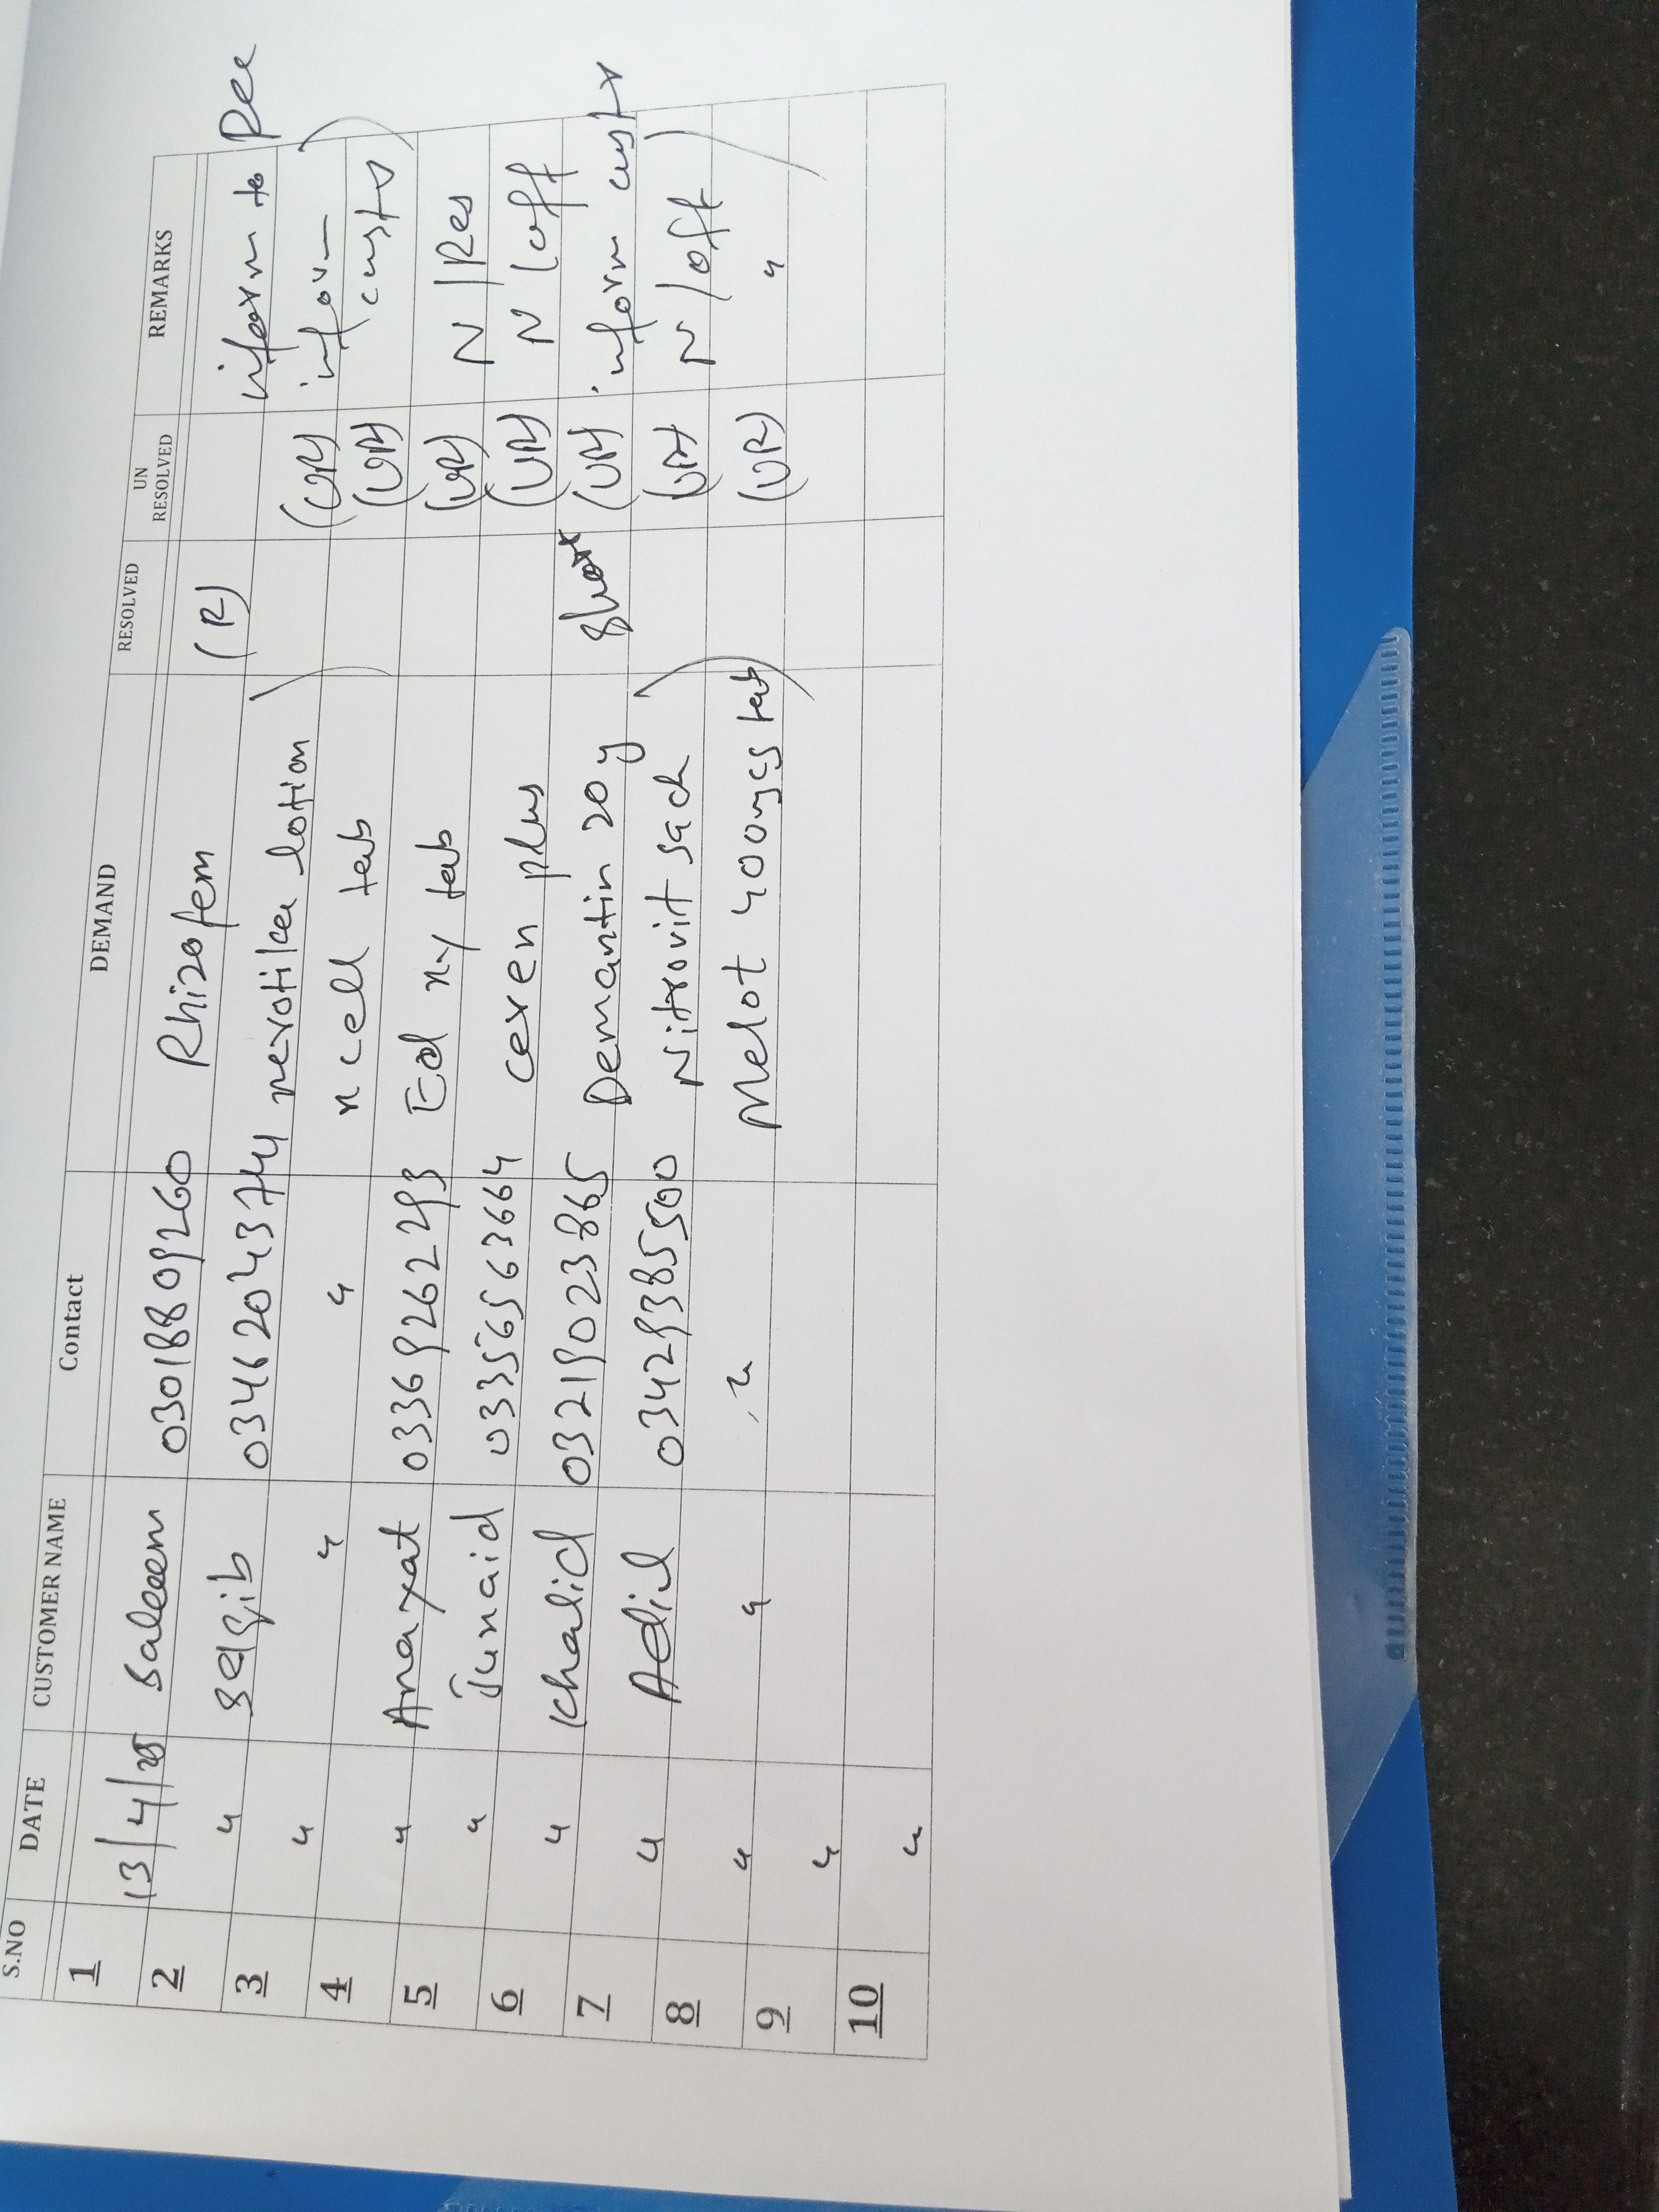 S.NO DATE CUSTOMER NAME Contact DEMAND RESOLVED UN RESOLVED REMARKS
1 13/4/25 Saleem 03018809260 Rhizofem (R) inform to
2 " 03462043744 lotion (UR) inform
3 " " " n cell tab (UR) custr
4 " Anayat 03369262293 tab (UR) N/Res
5 " Junaid 03356563664 ceren plus (UR) N/off
6 " Khalid 03219023865 Demantin 20 Short (UR) inform custr
7 " Adil 03429385500 Nitrovit sach (UR) N/off
8 " " " Melot 400mcg tab (UR) "
9 "
10 "